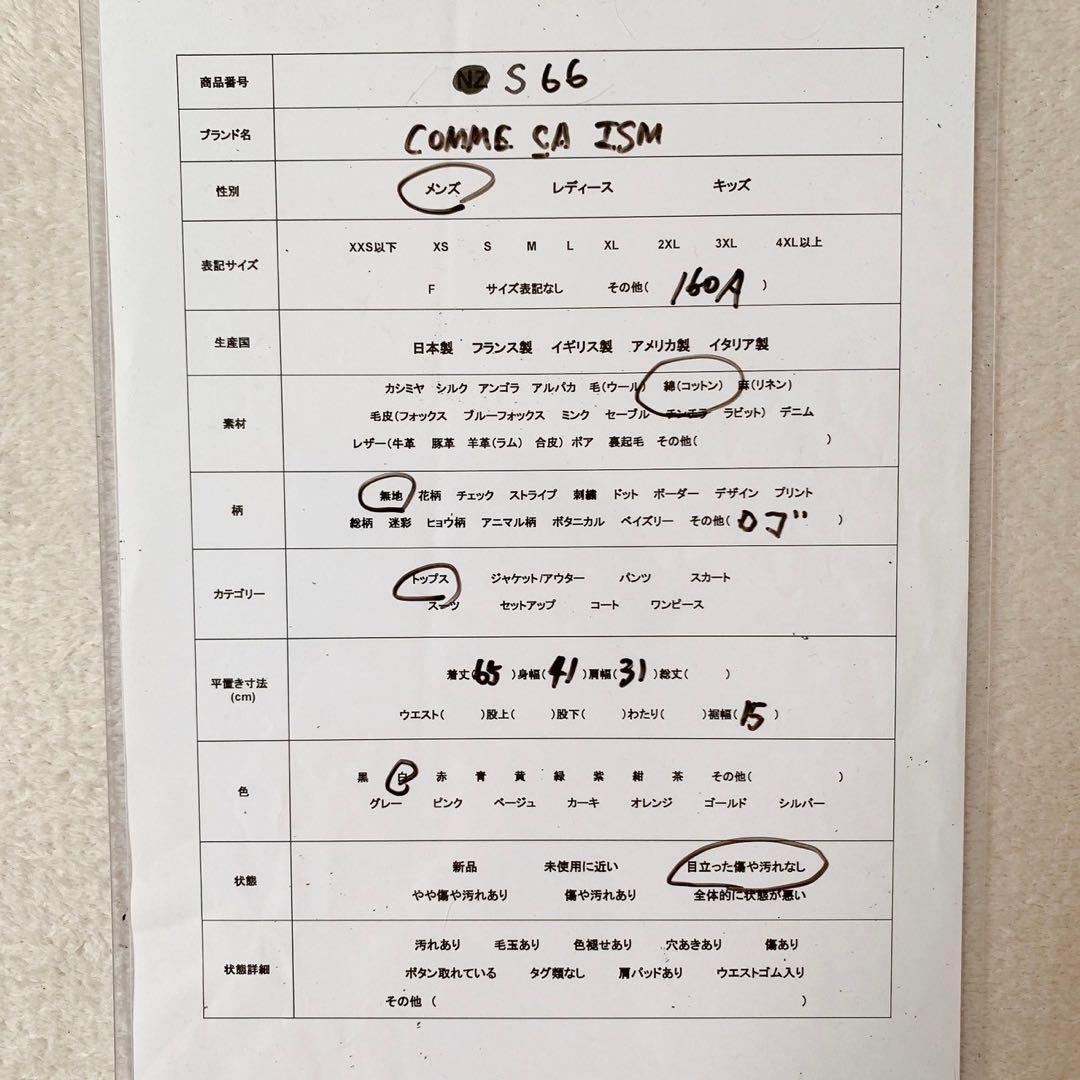 商品番号 NZ S 66
ブランド名 COMME CA ISM
性別 メンズ レディース キッズ
XXS以下 XS S M L XL 2XL 3XL 4XL以上
表記サイズ
F サイズ表記なし その他( 160A )
生産国 日本製 フランス製 イギリス製 アメリカ製 イタリア製
カシミヤ シルク アンゴラ アルパカ 毛(ウール) 綿(コットン) 麻(リネン)
素材 毛皮(フォックス ブルーフォックス ミンク セーブル チンチラ ラビット) デニム
レザー(牛革 豚革 羊革(ラム) 合皮) ボア 裏起毛 その他( )
無地 花柄 チェック ストライプ 刺繍 ドット ボーダー デザイン プリント
柄
総柄 迷彩 ヒョウ柄 アニマル柄 ボタニカル ペイズリー その他( ロゴ )
トップス ジャケット/アウター パンツ スカート
カテゴリー
スーツ セットアップ コート ワンピース
着丈(65 )身幅(41 )肩幅(31 )総丈( )
平置き寸法
(cm)
ウエスト( )股上( )股下( )わたり( )裾幅( 15 )
黒 白 赤 青 黄 緑 紫 紺 茶 その他( )
色
グレー ピンク ベージュ カーキ オレンジ ゴールド シルバー
新品 未使用に近い 目立った傷や汚れなし
状態
やや傷や汚れあり 傷や汚れあり 全体的に状態が悪い
汚れあり 毛玉あり 色褪せあり 穴あきあり 傷あり
状態詳細 ボタン取れている タグ類なし 肩パッドあり ウエストゴム入り
その他 ( )